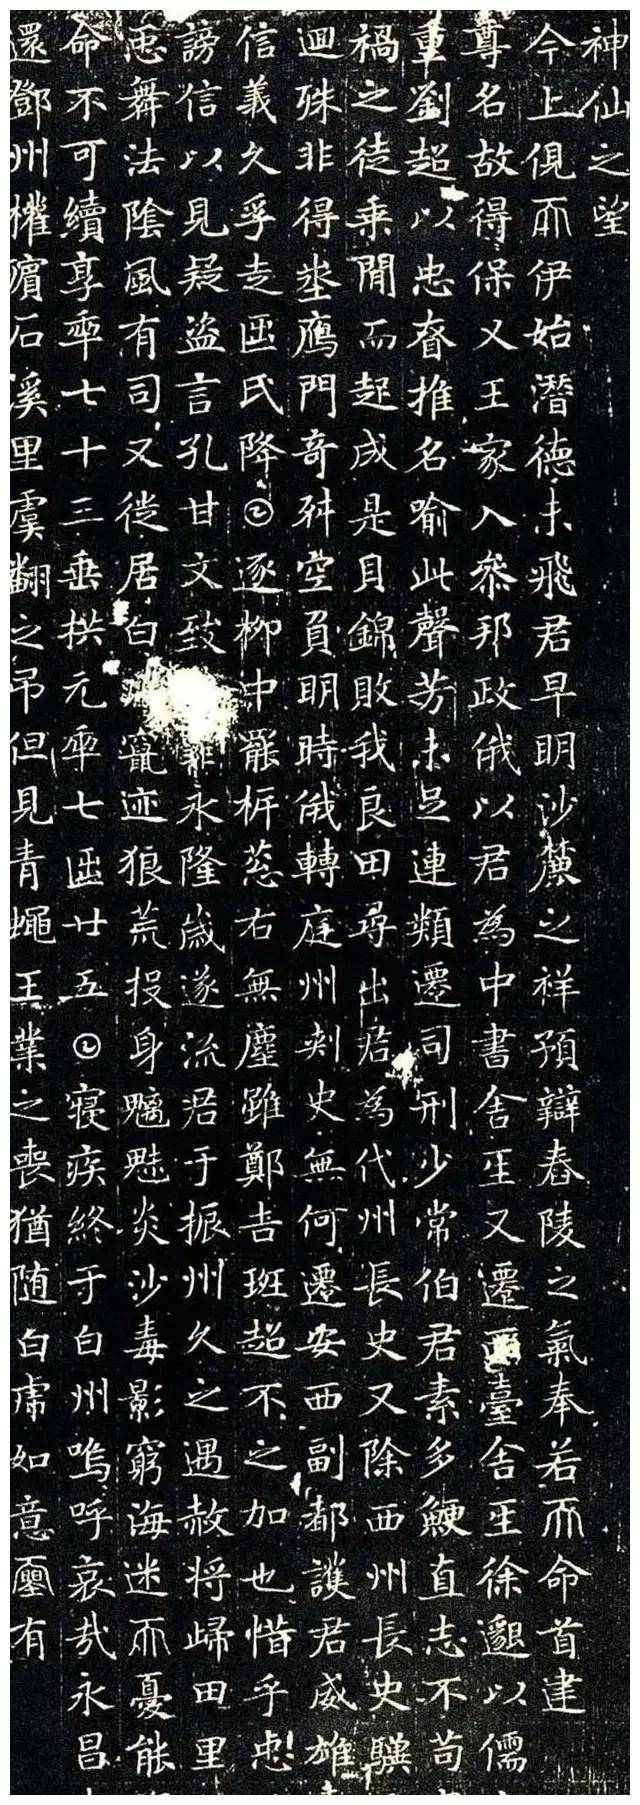 神仙之望
今上俔𠀑伊始潛德未飛君早明沙麓之祥預辯舂陵之氣奉若𠀑命首建
尊名故得保乂王家入叅邦政俄以君為中書舍𤯔又遷西臺舍𤯔徐邈以儒
重劉超以忠眘推名喻此聲芳未足連類遷司刑少常伯君素多鯁直志不苟
禍之徒乘閒而起成是貝錦敗我良田尋出君為代州長史又除西州長史驥
迴殊非得埊鴈門奇舛空負明時俄轉庭州刾史無何遷安西副都護君威雄
信義久孚走𠥱氏降𡆠逐柳中罷柝葱右無塵雖鄭吉班超不之加也惜乎忠
謗信以見疑盜言孔甘文致罪永隆歲遂流君于振州久之遇赦將歸田里
𢘑舞法陰風有司又徙居白竄迹狼荒投身魑魅炎沙毒影窮海迷𠀑憂能
命不可續享𠡦七十三垂拱元𠡦七𠥱廿五𡆠寢疾終于白州嗚呼哀哉永昌
還鄧州權濱石溪里虞翻之弔但見青蠅王業之喪猶随白虎如意有